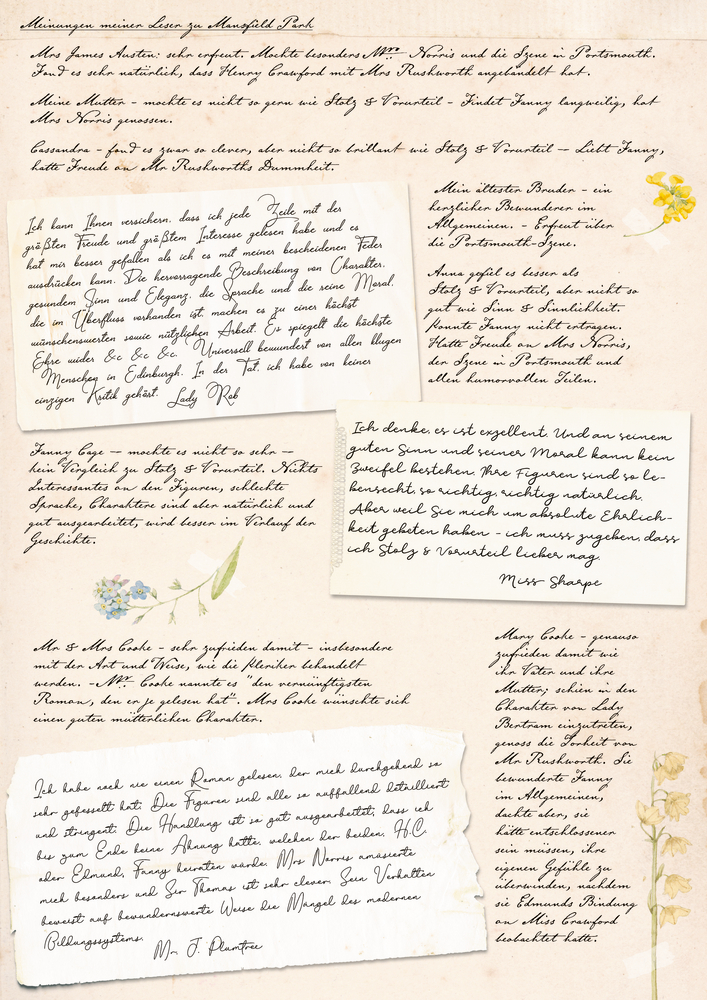 Meinungen meiner Leser zu Mansfield Park
Mrs James Austen: sehr erfreut. Mochte besonders Mrs. Norris und die Szene in Portsmouth.
Fand es sehr natürlich, dass Henry Crawford mit Mrs Rushworth angebändelt hat.
Meine Mutter - mochte es nicht so gern wie Stolz & Vorurteil - Findet Fanny langweilig, hat
Mrs Norris genossen.
Cassandra - fand es zwar so clever, aber nicht so brillant wie Stolz & Vorurteil — Liebt Fanny,
hatte Freude an Mr Rushworths Dummheit.
Ich kann Ihnen versichern, dass ich jede Zeile mit der
größten Freude und größtem Interesse gelesen habe und es
hat mir besser gefallen als ich es mit meiner bescheidenen Feder
ausdrücken kann. Die hervorragende Beschreibung von Charakter,
gesundem Sinn und Eleganz, die Sprache und die reine Moral,
die im Überfluss vorhanden ist, machen es zu einer höchst
wünschenswerten sowie nützlichen Arbeit. Es spiegelt die höchste
Ehre wider &c &c &c. Universell bewundert von allen klugen
Menschen in Edinburgh. In der Tat, ich habe von keiner
einzigen Kritik gehört. Lady Rob
Mein ältester Bruder - ein
herzlicher Bewunderer im
Allgemeinen. - Erfreut über
die Portsmouth-Szene.
Anna gefiel es besser als
Stolz & Vorurteil, aber nicht so
gut wie Sinn & Sinnlichkeit.
Konnte Fanny nicht ertragen.
Hatte Freude an Mrs Norris,
der Szene in Portsmouth und
allen humorvollen Teilen.
Ich denke, es ist exzellent. Und an seinem
guten Sinn und seiner Moral kann kein
Zweifel bestehen. Ihre Figuren sind so le-
bensecht, so richtig, richtig natürlich.
Aber weil Sie mich um absolute Ehrlich-
keit gebeten haben - ich muss zugeben, dass
ich Stolz & Vorurteil lieber mag.
Miss Sharpe
Fanny Cage — mochte es nicht so sehr —
kein Vergleich zu Stolz & Vorurteil. Nichts
Interessantes an den Figuren, schlechte
Sprache, Charaktere sind aber natürlich und
gut ausgearbeitet, wird besser im Verlauf der
Geschichte.
Mr & Mrs Cooke - sehr zufrieden damit - insbesondere
mit der Art und Weise, wie die Kleriker behandelt
werden. - Mr. Cooke nannte es "den vernünftigsten
Roman, den er je gelesen hat". Mrs Cooke wünschte sich
einen guten mütterlichen Charakter.
Mary Cooke - genauso
zufrieden damit wie
ihr Vater und ihre
Mutter; schien in den
Charakter von Lady
Bertram einzutreten,
genoss die Torheit von
Mr Rushworth. Sie
bewunderte Fanny
im Allgemeinen,
dachte aber, sie
hätte entschlossener
sein müssen, ihre
eigenen Gefühle zu
überwinden, nachdem
sie Edmunds Bindung
an Miss Crawford
beobachtet hatte.
Ich habe noch nie einen Roman gelesen, der mich durchgehend so
sehr gefesselt hat. Die Figuren sind alle so auffallend detailliert
und stringent. Die Handlung ist so gut ausgearbeitet, dass ich
bis zum Ende keine Ahnung hatte, welchen der beiden, H.C.
oder Edmund, Fanny heiraten würde. Mrs Norris amüsierte
mich besonders und Sir Thomas ist sehr clever. Sein Verhalten
beweist auf bewundernswerte Weise die Mängel des modernen
Bildungssystems.
Mr. J. Plumtree